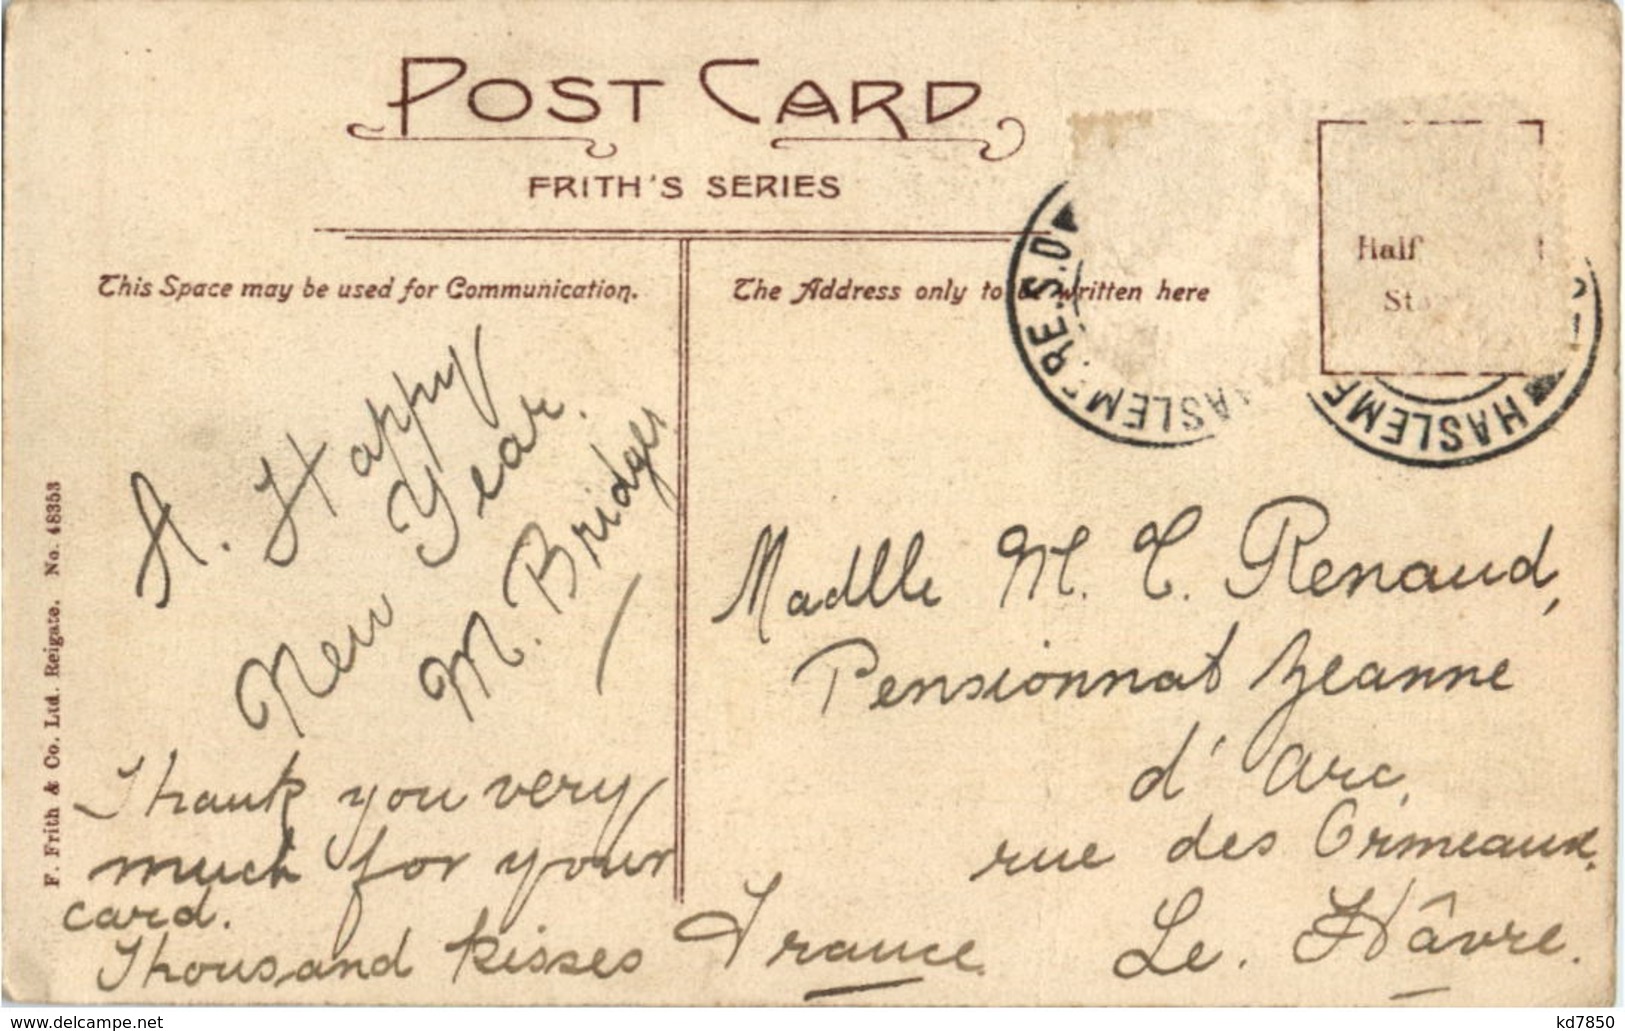 POST CARD
FRITH'S SERIES
This Space may be used for Communication.
The Address only to be written here
Half
HASLEMERE.S.O
HASLEME
A. Happy
New Year.
M. Bridger
Thank you very
much for your
card.
Thousand kisses
Madlle M. T. Renaud,
Pensionnat Jeanne
d'Arc,
rue des Ormeaux.
Le. Hâvre.
France
F. Frith & Co. Ltd. Reigate. No. 48353
www.delcampe.net
kd7850